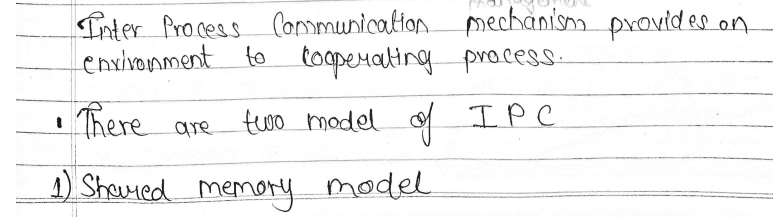 Inter Process Communication mechanism provides on
environment to cooperating process.
• There are two model of IPC
1) Shared memory model